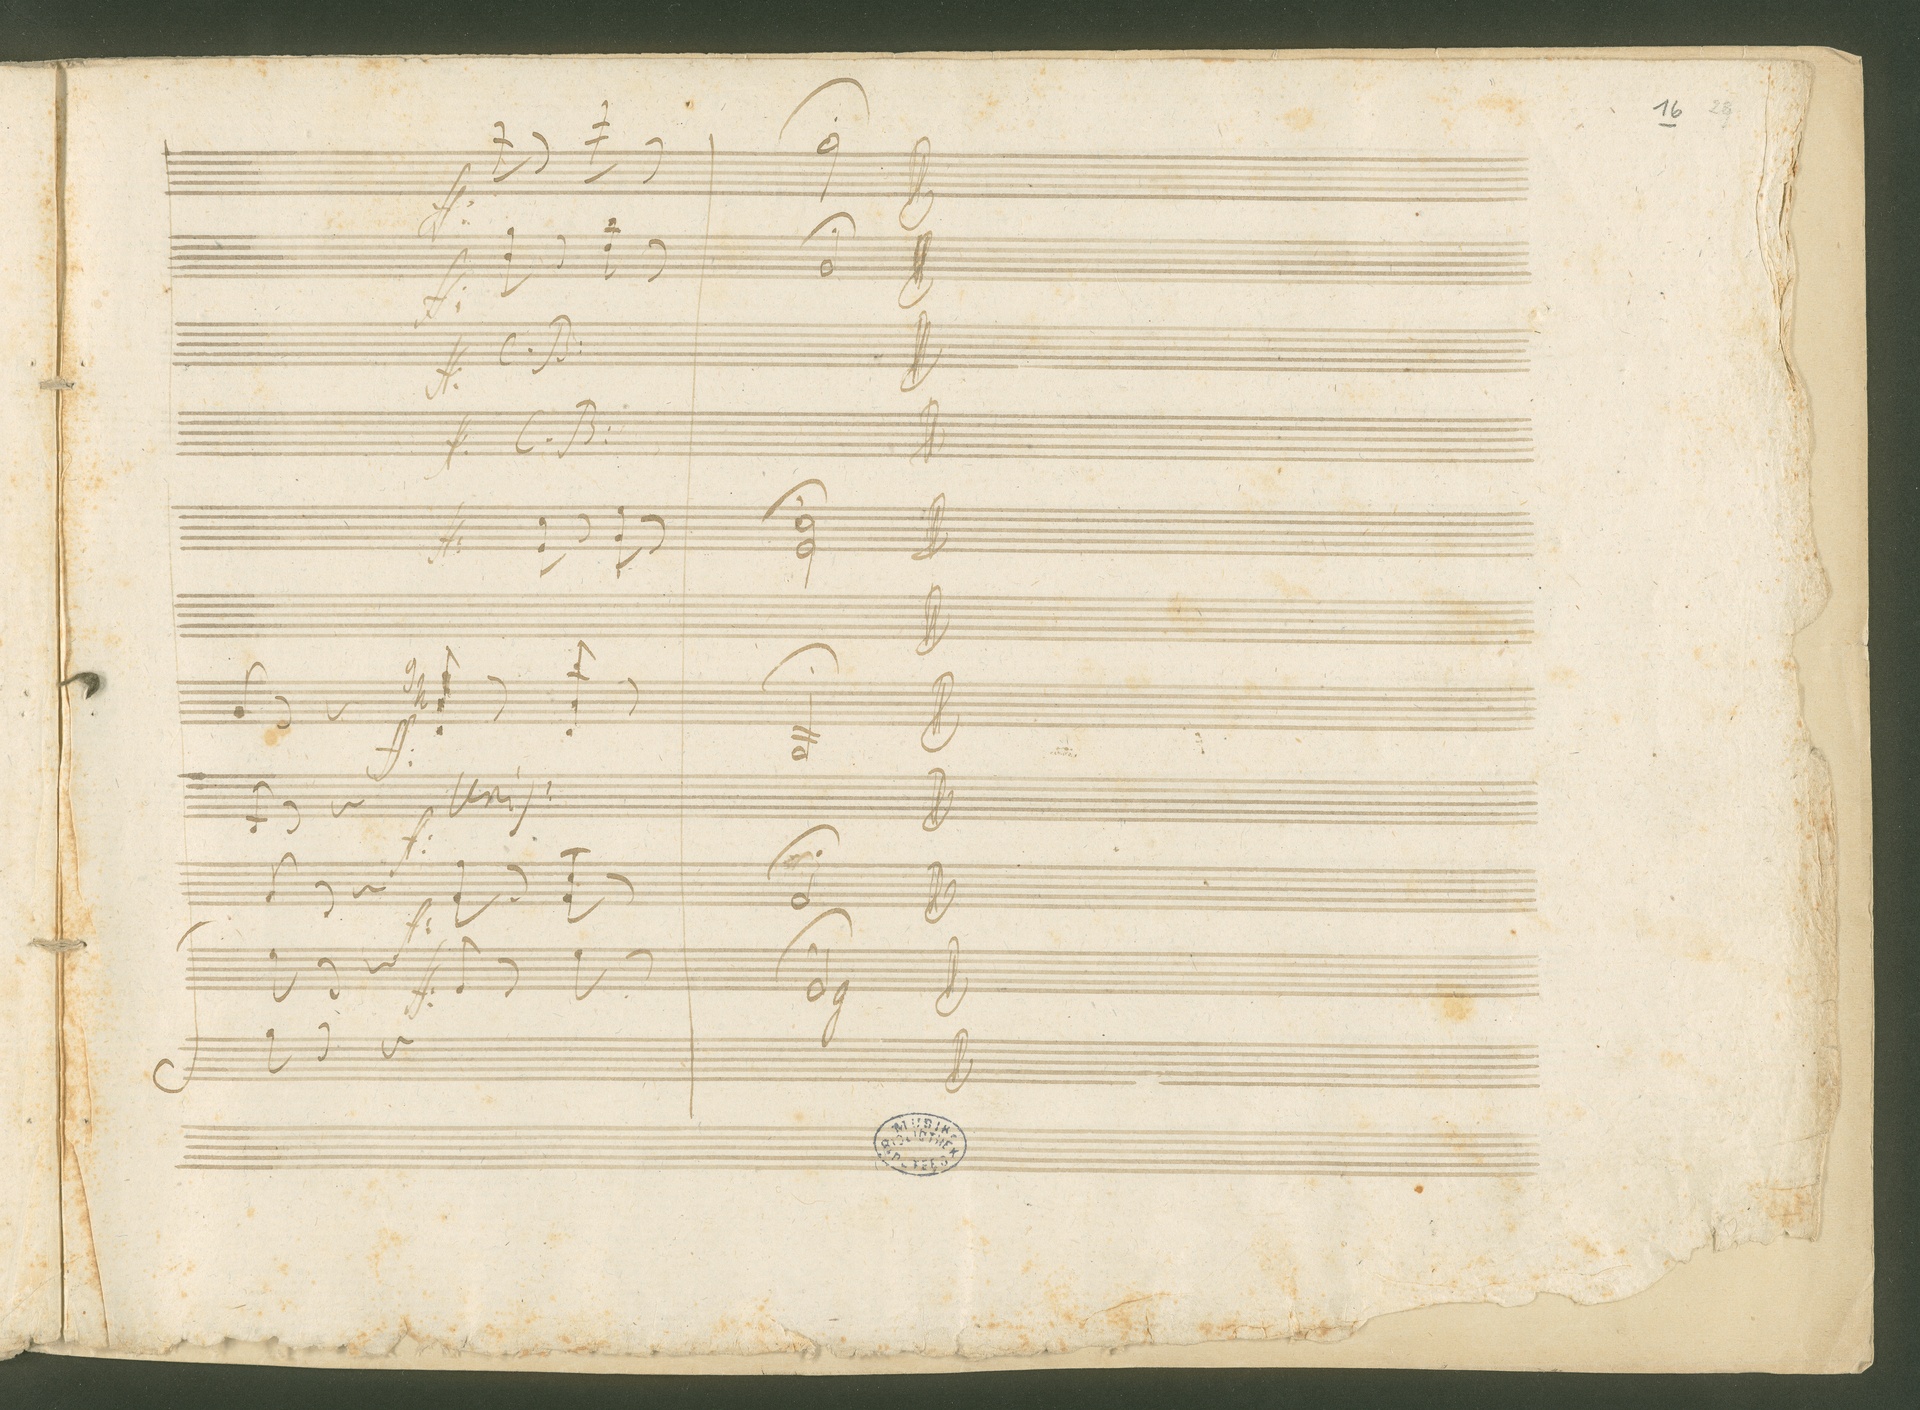 16 28
ff:
ff:
ff: C. B:
f: C. B:
ff:
ff:
f: Unis:
f:
ff:
MUSIK
BIBLIOTHEK
PETERS